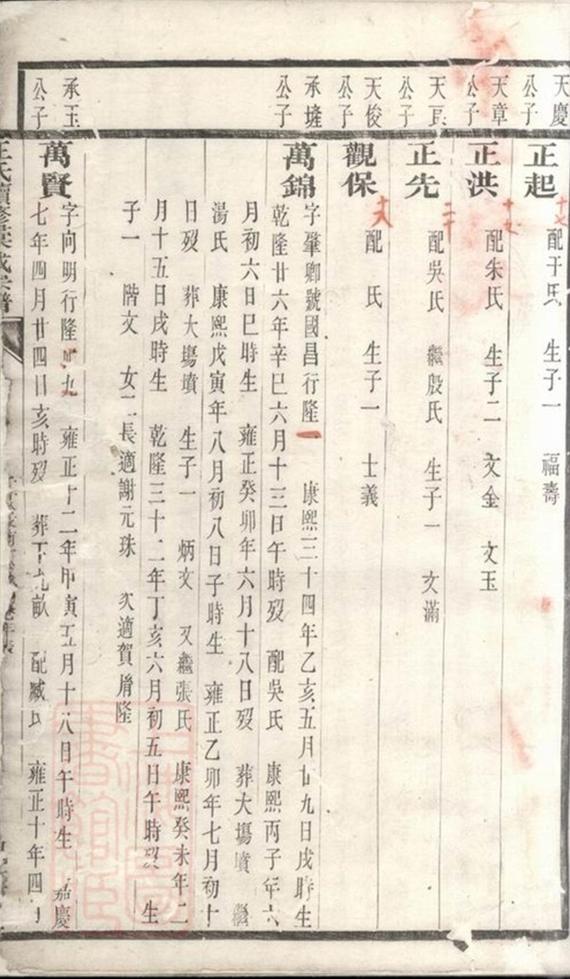 天慶公子
正起
配于氏 生子一 福壽
天章公子
正洪
配朱氏 生子二 文金 文玉
天民公子
正先
配吳氏 繼殷氏 生子一 文滿
天俊公子
觀保
配 氏 生子一 士義
承墔公子
萬錦
字肇卿號國昌行隆一 康熙三十四年乙亥五月廿九日戌時生
乾隆廿六年辛巳六月十三日午時歿 配吳氏 康熙丙子年六
月初六日巳時生 雍正癸卯年六月十八日歿 葬大塲墳 繼
湯氏 康熙戊寅年八月初八日子時生 雍正乙卯年七月初十
日歿 葬大塲墳 生子一 炳文 又繼張氏 康熙癸未年二
月十五日戌時生 乾隆三十二年丁亥六月初五日午時歿 生
子一 階文 女二長適謝元珠 次適賀 隆
承玉公子
萬賢
字向明行隆 九 雍正十二年甲寅五月十八日午時生 嘉慶
七年四月廿四日亥時歿 葬下九畝 配臧氏 雍正十年四月
王氏續修 成宗譜